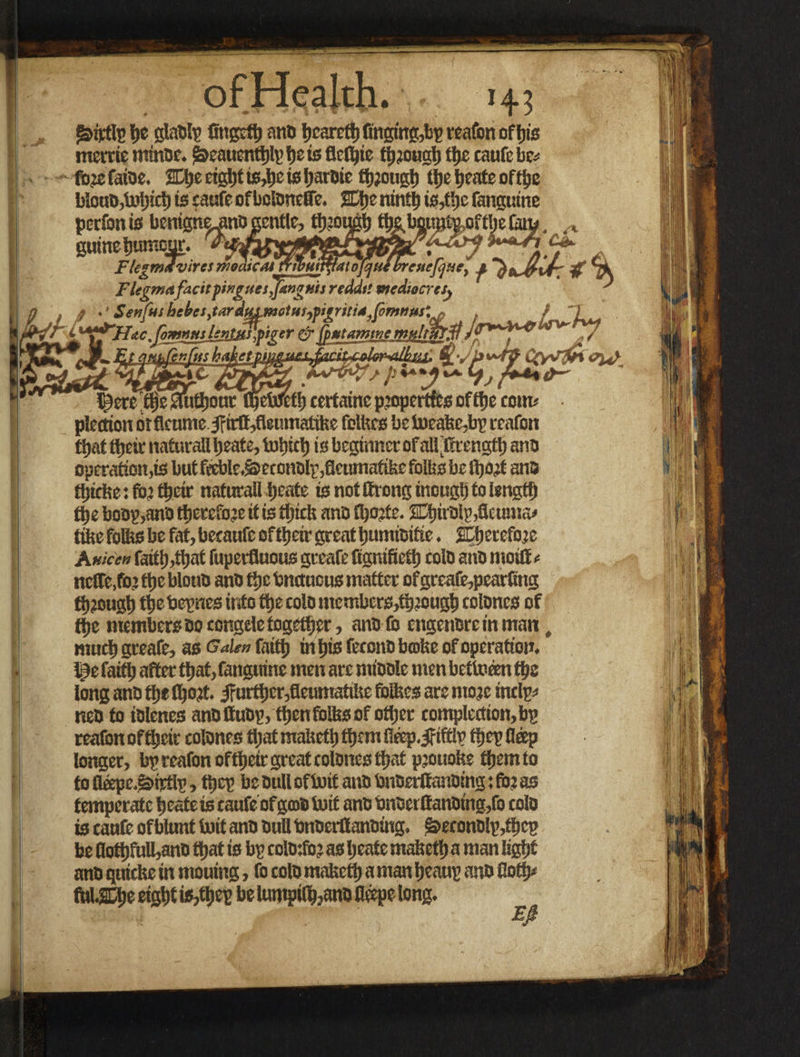 of Health. 143
Sixtly he gladly singeth and heareth singing, by reason of his
merrie minde. Seauenthly he is fleshie through the cause be-
fore saide. The eight is, he is hardie through the heate of the
bloud, which is cause of boldnesse. The ninth is, the sanguine
person is benigne and gentle, through the bounty of the san-
guine humour.
Flegma vires modicas tribuit latosque breuesque,
Flegma facit pingues, sanguis reddit mediocres,
Sensus hebes, tardus motus, pigritia, somnus:
Hæc somnus lentus piger & sputamine multus.
Est qui sensus habet pingues facit color albus.
Here the Authour sheweth certaine properties of the com-
plection of fleume. First, fleumatike folkes be weake, by reason
that their naturall heate, which is beginner of all strength and
operation, is but feeble. Secondly, fleumatike folks be short and
thicke: for their naturall heate is not strong inough to length
the body, and therefore it is thick and shorte. Thirdly, fleuma-
tike folks be fat, because of their great humiditie. Therefore
Auicen saith, that superfluous grease signifieth cold and moist-
nesse, for the bloud and the vnctuous matter of grease, pearsing
through the veynes into the cold members, through coldnes of
the members do congele together, and so engendre in man
much grease, as Galen saith in his second booke of operation.
He saith after that, sanguine men are middle men between the
long and the short. Further, fleumatike folkes are more incly-
ned to idlenes and study, then folks of other complection, by
reason of their coldnes that maketh them sleep. Fiftly they sleep
longer, by reason of their great coldnes that prouoke them to
to sleepe. Sixtly, they be dull of wit and vnderstanding: for as
temperate heate is cause of good wit and vnderstanding, so cold
is cause of blunt wit and dull vnderstanding. Secondly, they
be slothfull, and that is by cold: for as heate maketh a man light
and quicke in mouing, so cold maketh a man heauy and sloth-
ful. The eight is, they be lumpish, and sleepe long.
Est